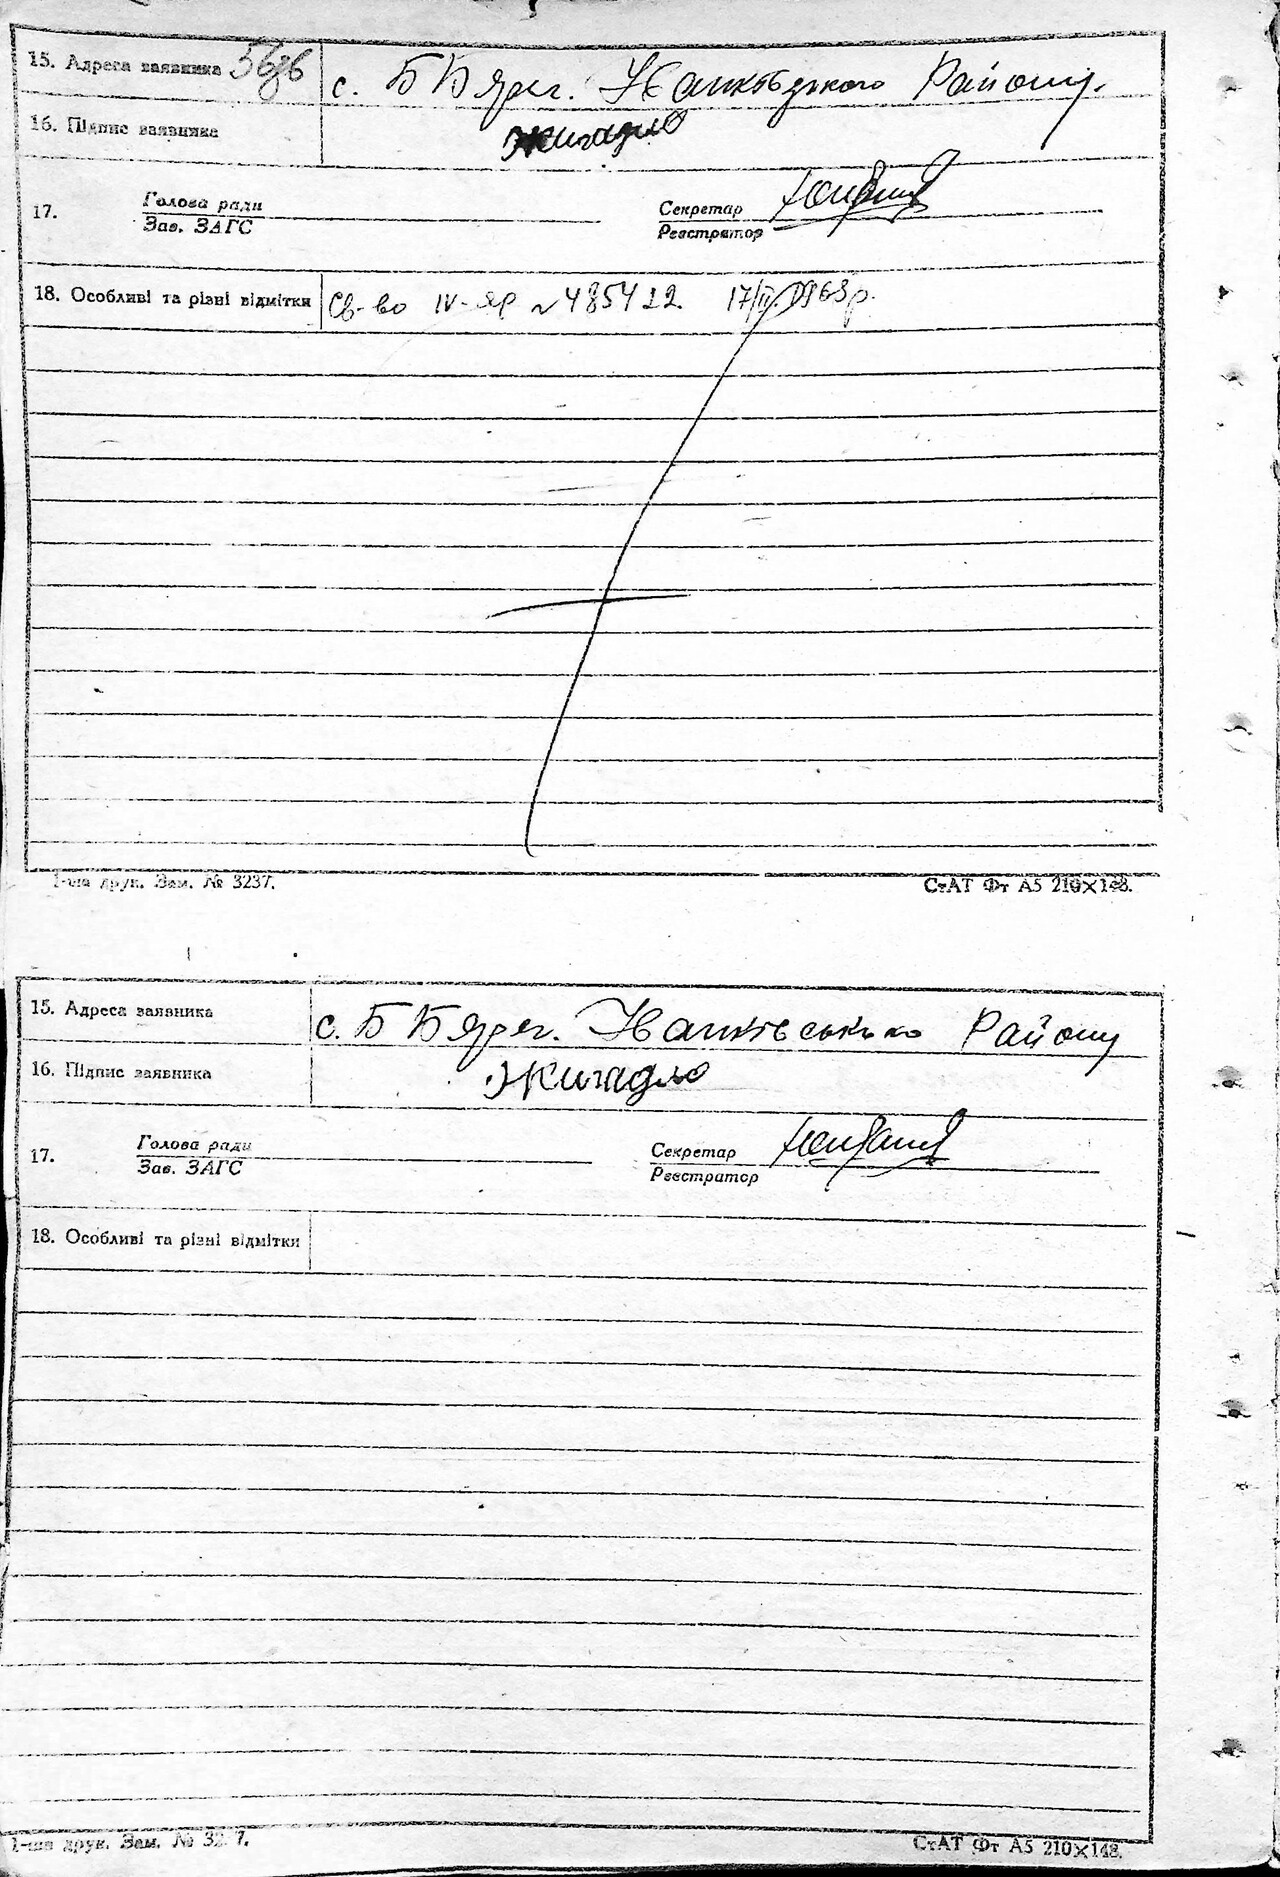 15. Адреса заявника
с. Б Бярег. Іванківського Району.
16. Підпис заявника Жигадло
Голова ради
17. Зав. ЗАГС
Секретар
Реєстратор
18. Особливі та різні відмітки Св-во IV-яр № 485422 17/II 1963р.
1-ша друк. Зам. № 3237. СтАТ Фт А5 210×148.
15. Адреса заявника с. Б Бярег. Іванківського Району
16. Підпис заявника Жигадло
Голова ради
17. Зав. ЗАГС
Секретар
Реєстратор
18. Особливі та різні відмітки
1-ша друк. Зам. № 32 7. СтАТ Фт А5 210×148.